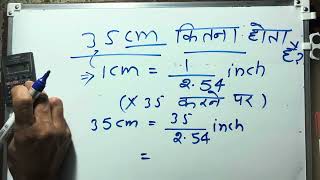 35cm कितना होता है?
⇒ 1cm = 1/2.54 inch
(X 35 करने पर)
35cm = 35/2.54 inch
=